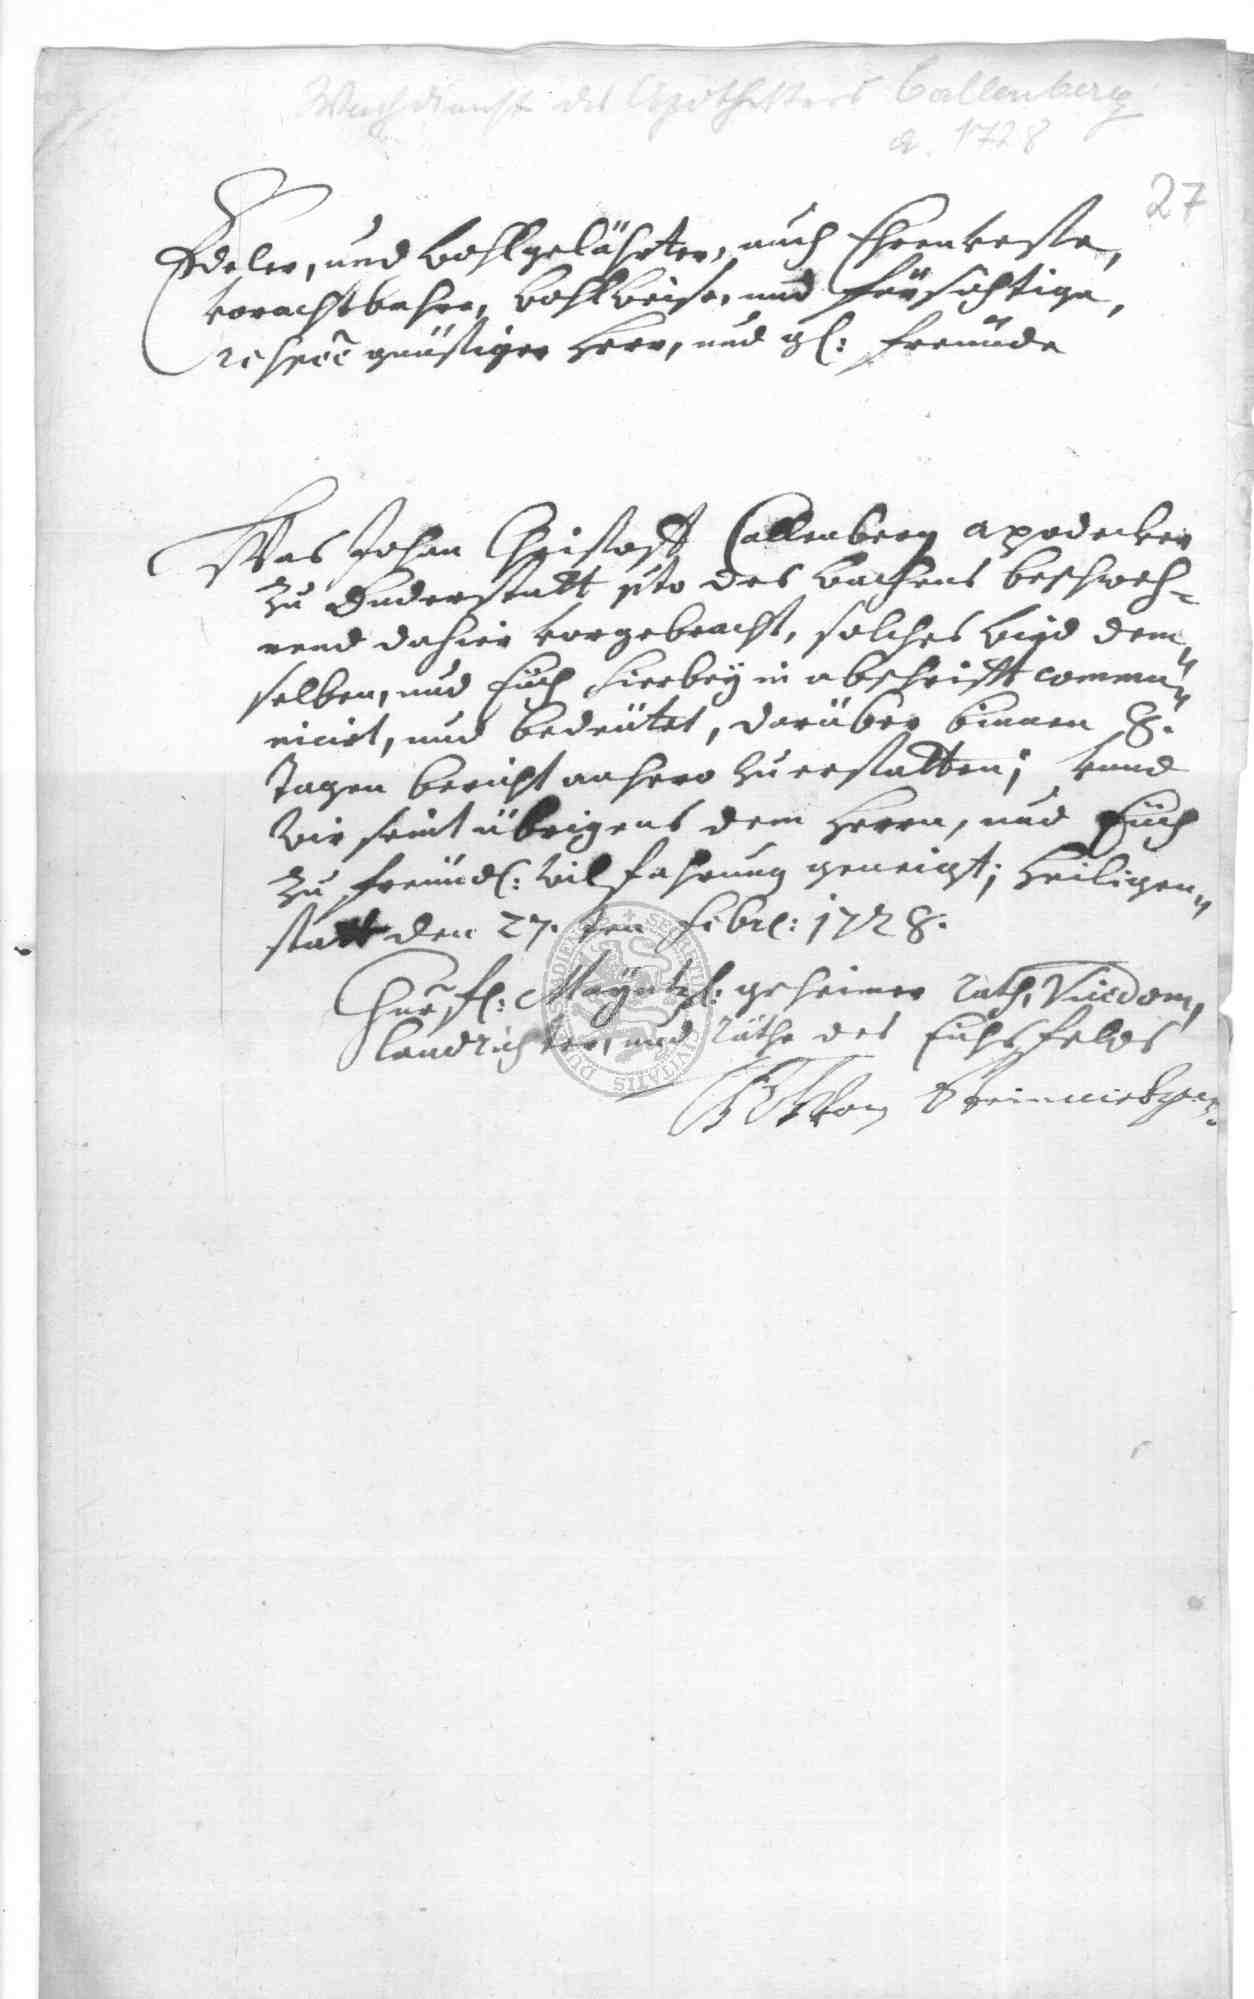 Wachdienst des Apothekers Callenberg
a. 1728
27
Edeler, und wohlgelährter, auch Ehrenveste,
vorachtbahre, wohlweise, und fürsichtige,
respec günstiger Herr, und gl: freünde
Was Johan Christoff Callenberg apodecker
zu Duderstatt pto des wachens beschweh-
rend dahier vorgebracht, solches wird dem„
selben, und Eüch hierbey in abschrifft commu„
nicirt, und bedeütet, darüber binnen 8.
tagen bericht anhero zu erstatten; vnnd
wir seint übrigens dem Herrn, und Eüch
zu freündl: wilfahrung geneigt; Heiligen„
statt den 27. ten Febrl: 1728.
Churfl: Mayntzl: geheimer rath, Vicedom,
Landrichter, und räthe des Eichsfelds
SECRETUM CIVITATIS